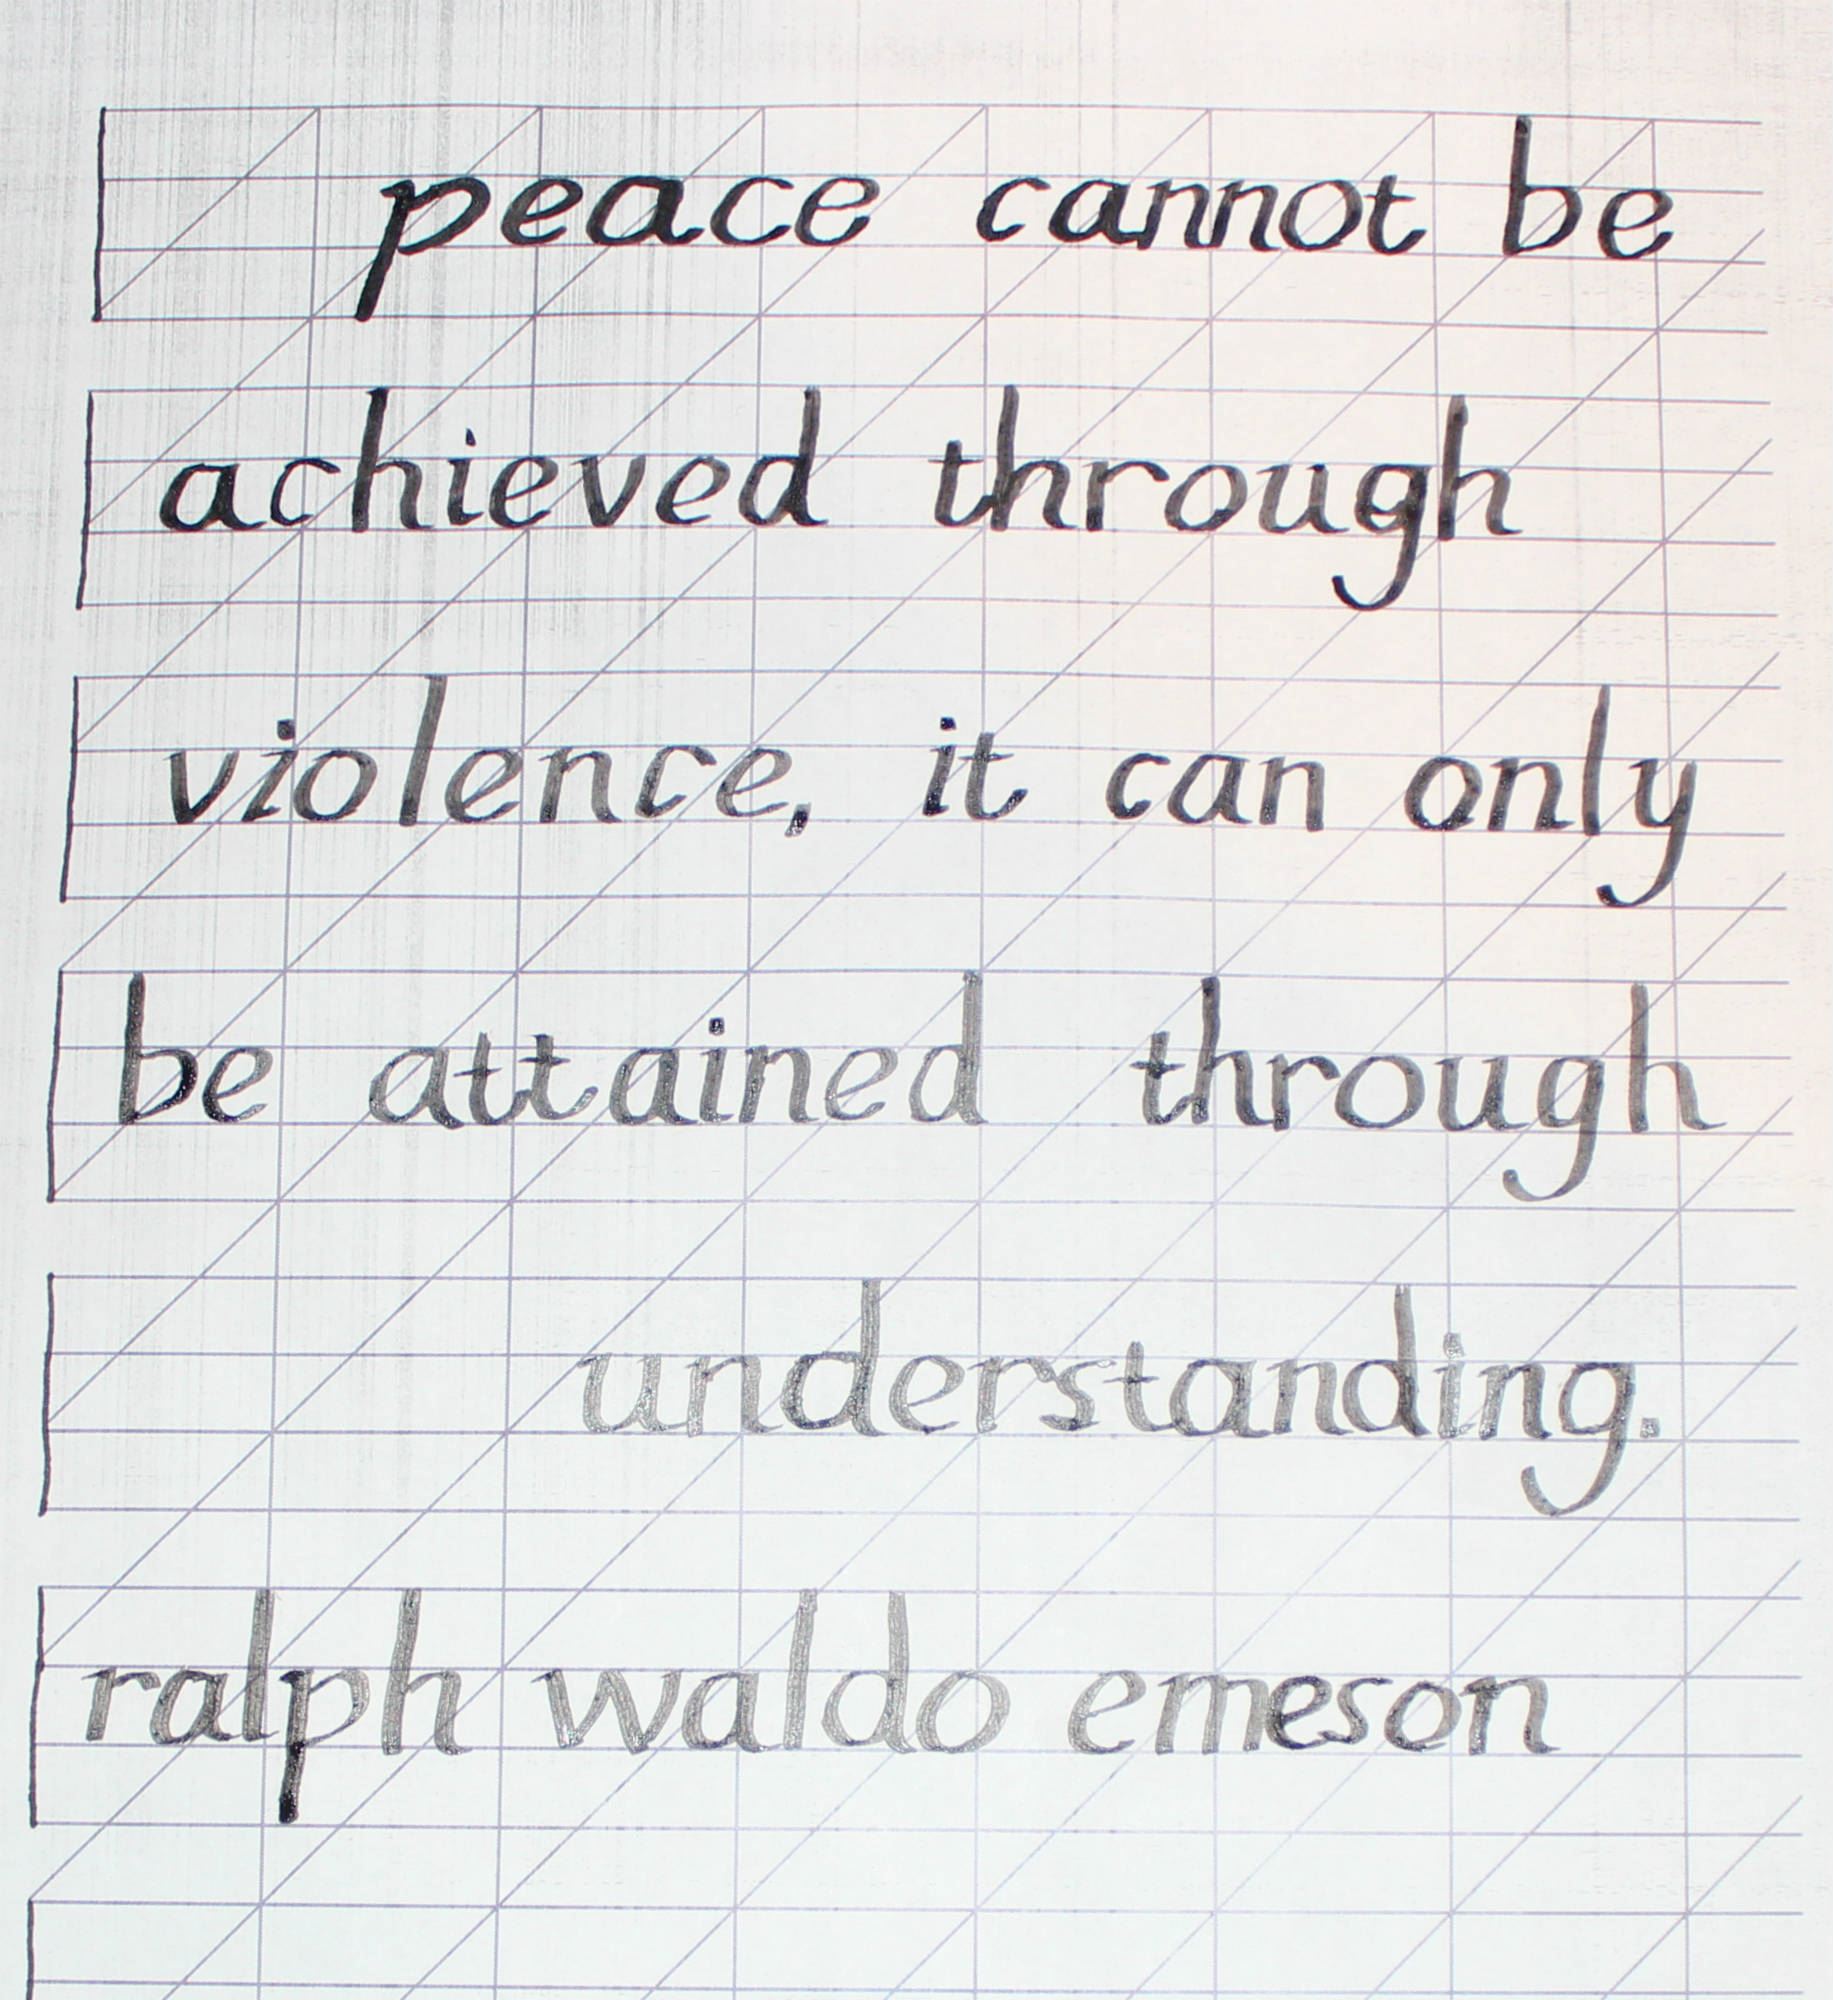 peace cannot be
achieved through
violence, it can only
be attained through
understanding.
ralph waldo emeson